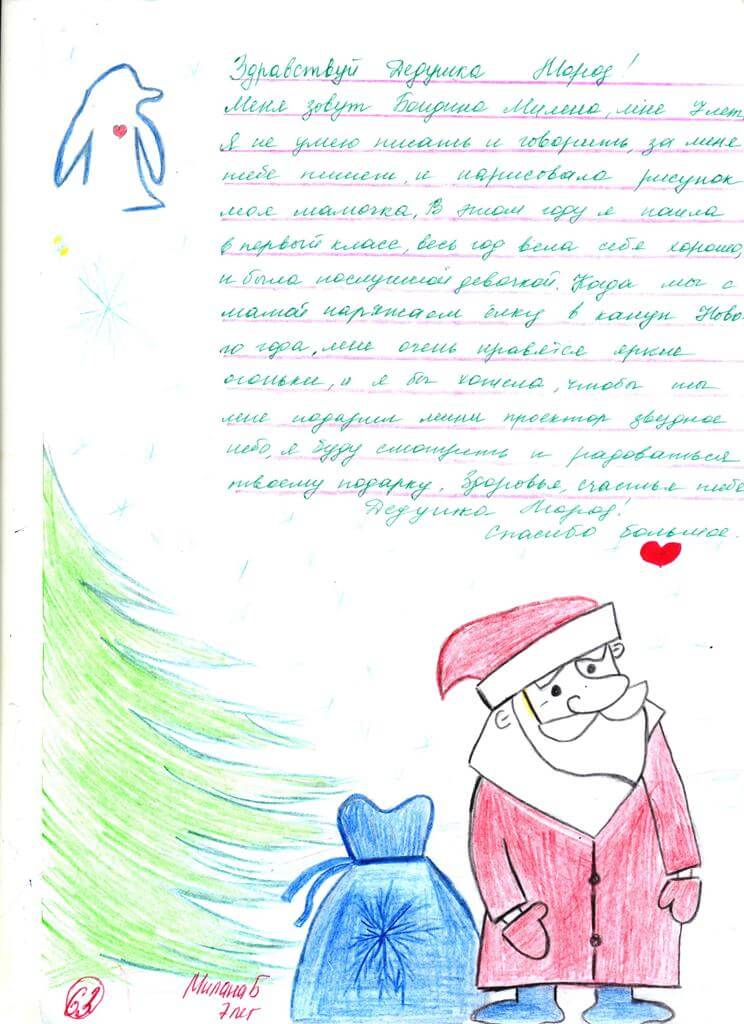 Здравствуй Дедушка Мороз!
Меня зовут Милена, мне 7 лет,
Я не умею писать и говорить, за меня
тебе пишет, и нарисовала рисунок
моя мамочка. В этом году я пошла
в первый класс, весь год вела себя хорошо,
и была послушной девочкой. Когда мы с
мамой наряжаем ёлку в канун Ново-
го года, мне очень нравятся яркие
огоньки, и я бы хотела, чтобы ты
мне подарил мини проектор звездное
небо, я буду смотреть и радоваться
твоему подарку. Здоровья, счастья тебе
Дедушка Мороз!
Спасибо большое.
Милана Б
7 лет
63